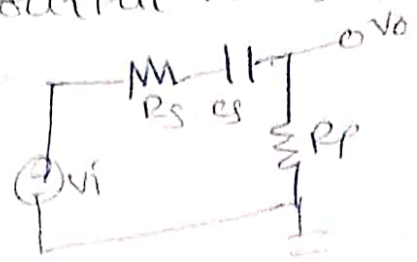 Vo
Rs Cs
Rp
Vi